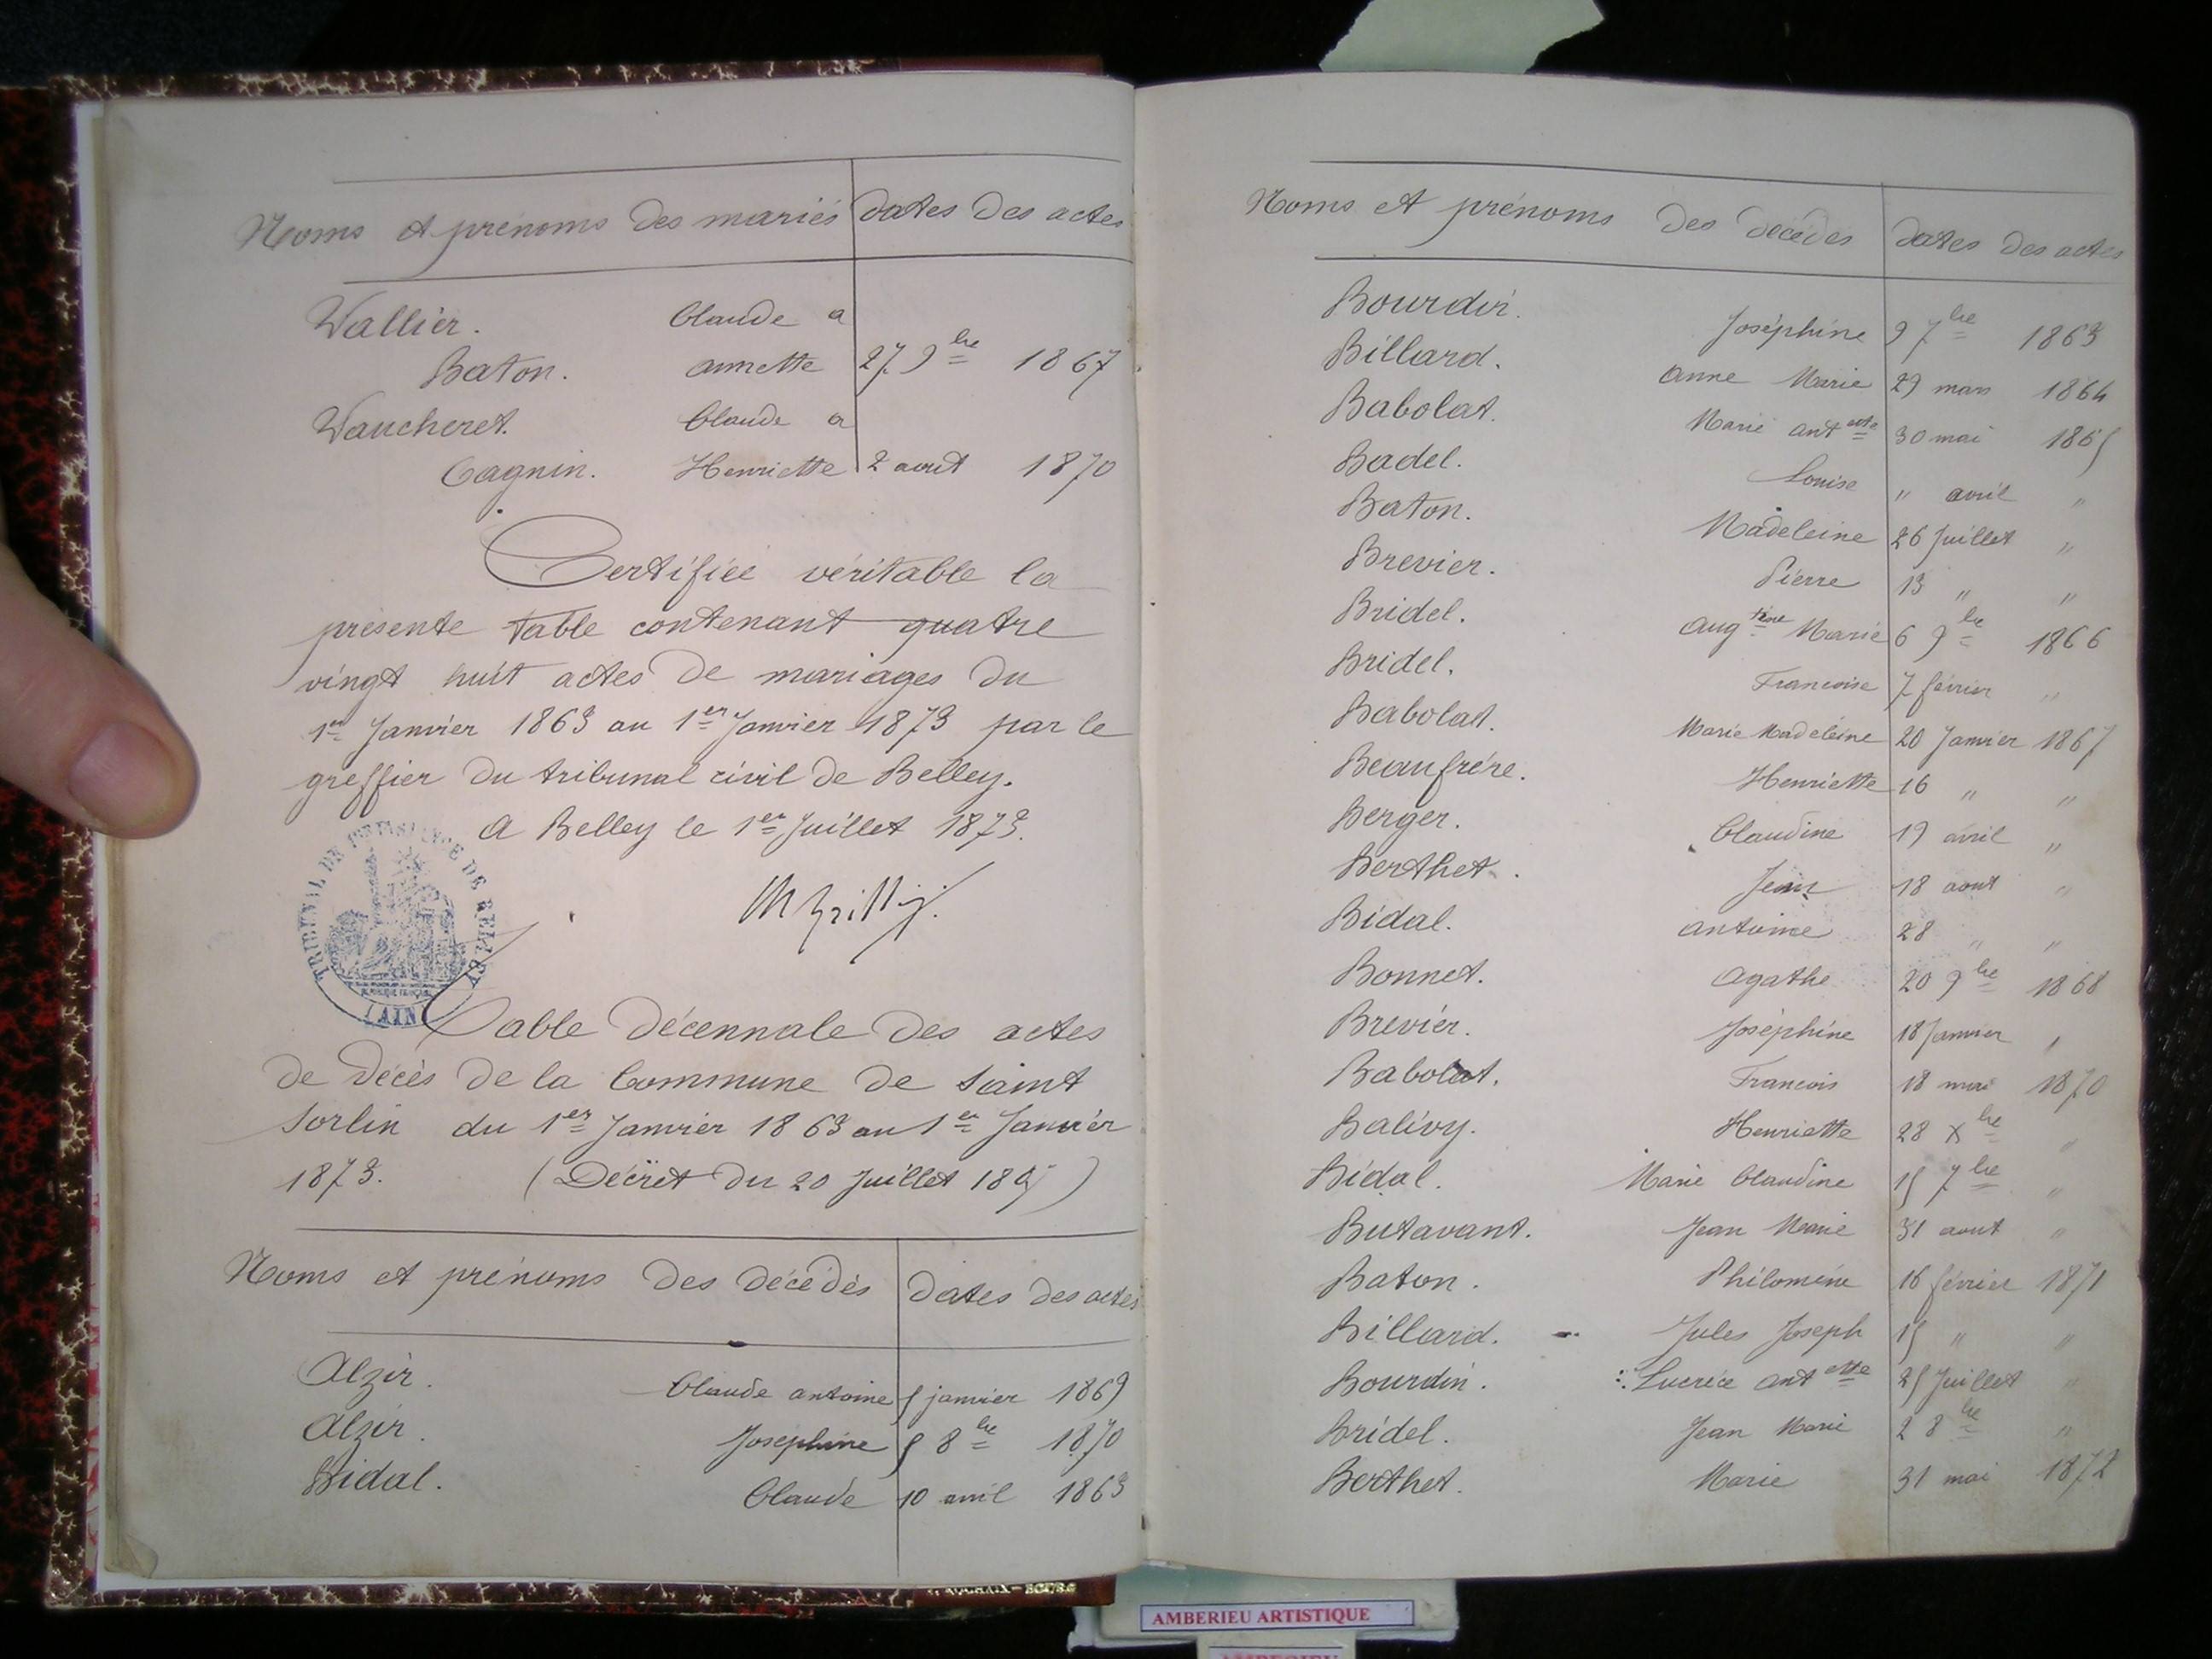 Noms et prénoms des mariés dates des actes
Vallier. Claude a
Baton. annette 27 9bre 1867
Vaucheret. Claude a
Cagnin. Henriette 2 aout 1870
Certifiée véritable la
présente table contenant quatre
vingt huit actes de mariages du
1er Janvier 1863 au 1er Janvier 1873 par le
greffier du tribunal civil de Belley.
A Belley le 1er Juillet 1873.
TRIBUNAL DE PREMIERE INSTANCE DE BELLEY
(AIN)
Table décennale des actes
de décès de la Commune de Saint
Sorlin du 1er Janvier 1863 au 1er Janvier
1873. (Décret du 20 Juillet )
Noms et prénoms des décédés dates des actes
Alzir. Claude antoine 5 janvier 1869
Alzir. Josephine 5 8bre 1870
Bidal. Claude 10 avril 1863
Noms et prénoms des décédés dates des actes
Bourdin. Joséphine 9 7bre 1863
Billard. anne Marie 29 mars 1864
Babolat. Marie antette 30 mai 1865
Badel. Louise " avril "
Baton. Madeleine 26 Juillet "
Brevier. Pierre 13 " "
Bridel. augtine Marie 6 9bre 1866
Bridel. Francoise 7 février "
Babolat. Marie Madeleine 20 Janvier 1867
Beaufrére. Henriette 16 " "
Berger. Claudine 19 avril "
Berthet. Jean 18 aout "
Bidal. antoine 28 " "
Bonnet. agathe 20 9bre 1868
Brevier. Joséphine 18 Janvier "
Babolat. Francois 18 mai 1870
Balivy. Henriette 28 Xbre "
Bidal. Marie Claudine 15 7bre "
Butavant. Jean Marie 31 aout "
Baton. Philomène 16 février 1871
Billard. Jules Joseph 15 " "
Bourdin. Lucrèce antette 25 Juillet "
Bridel. Jean Marie 2 8bre "
Berthet. Marie 31 mai 1872
AMBERIEU ARTISTIQUE
AMBERIEU